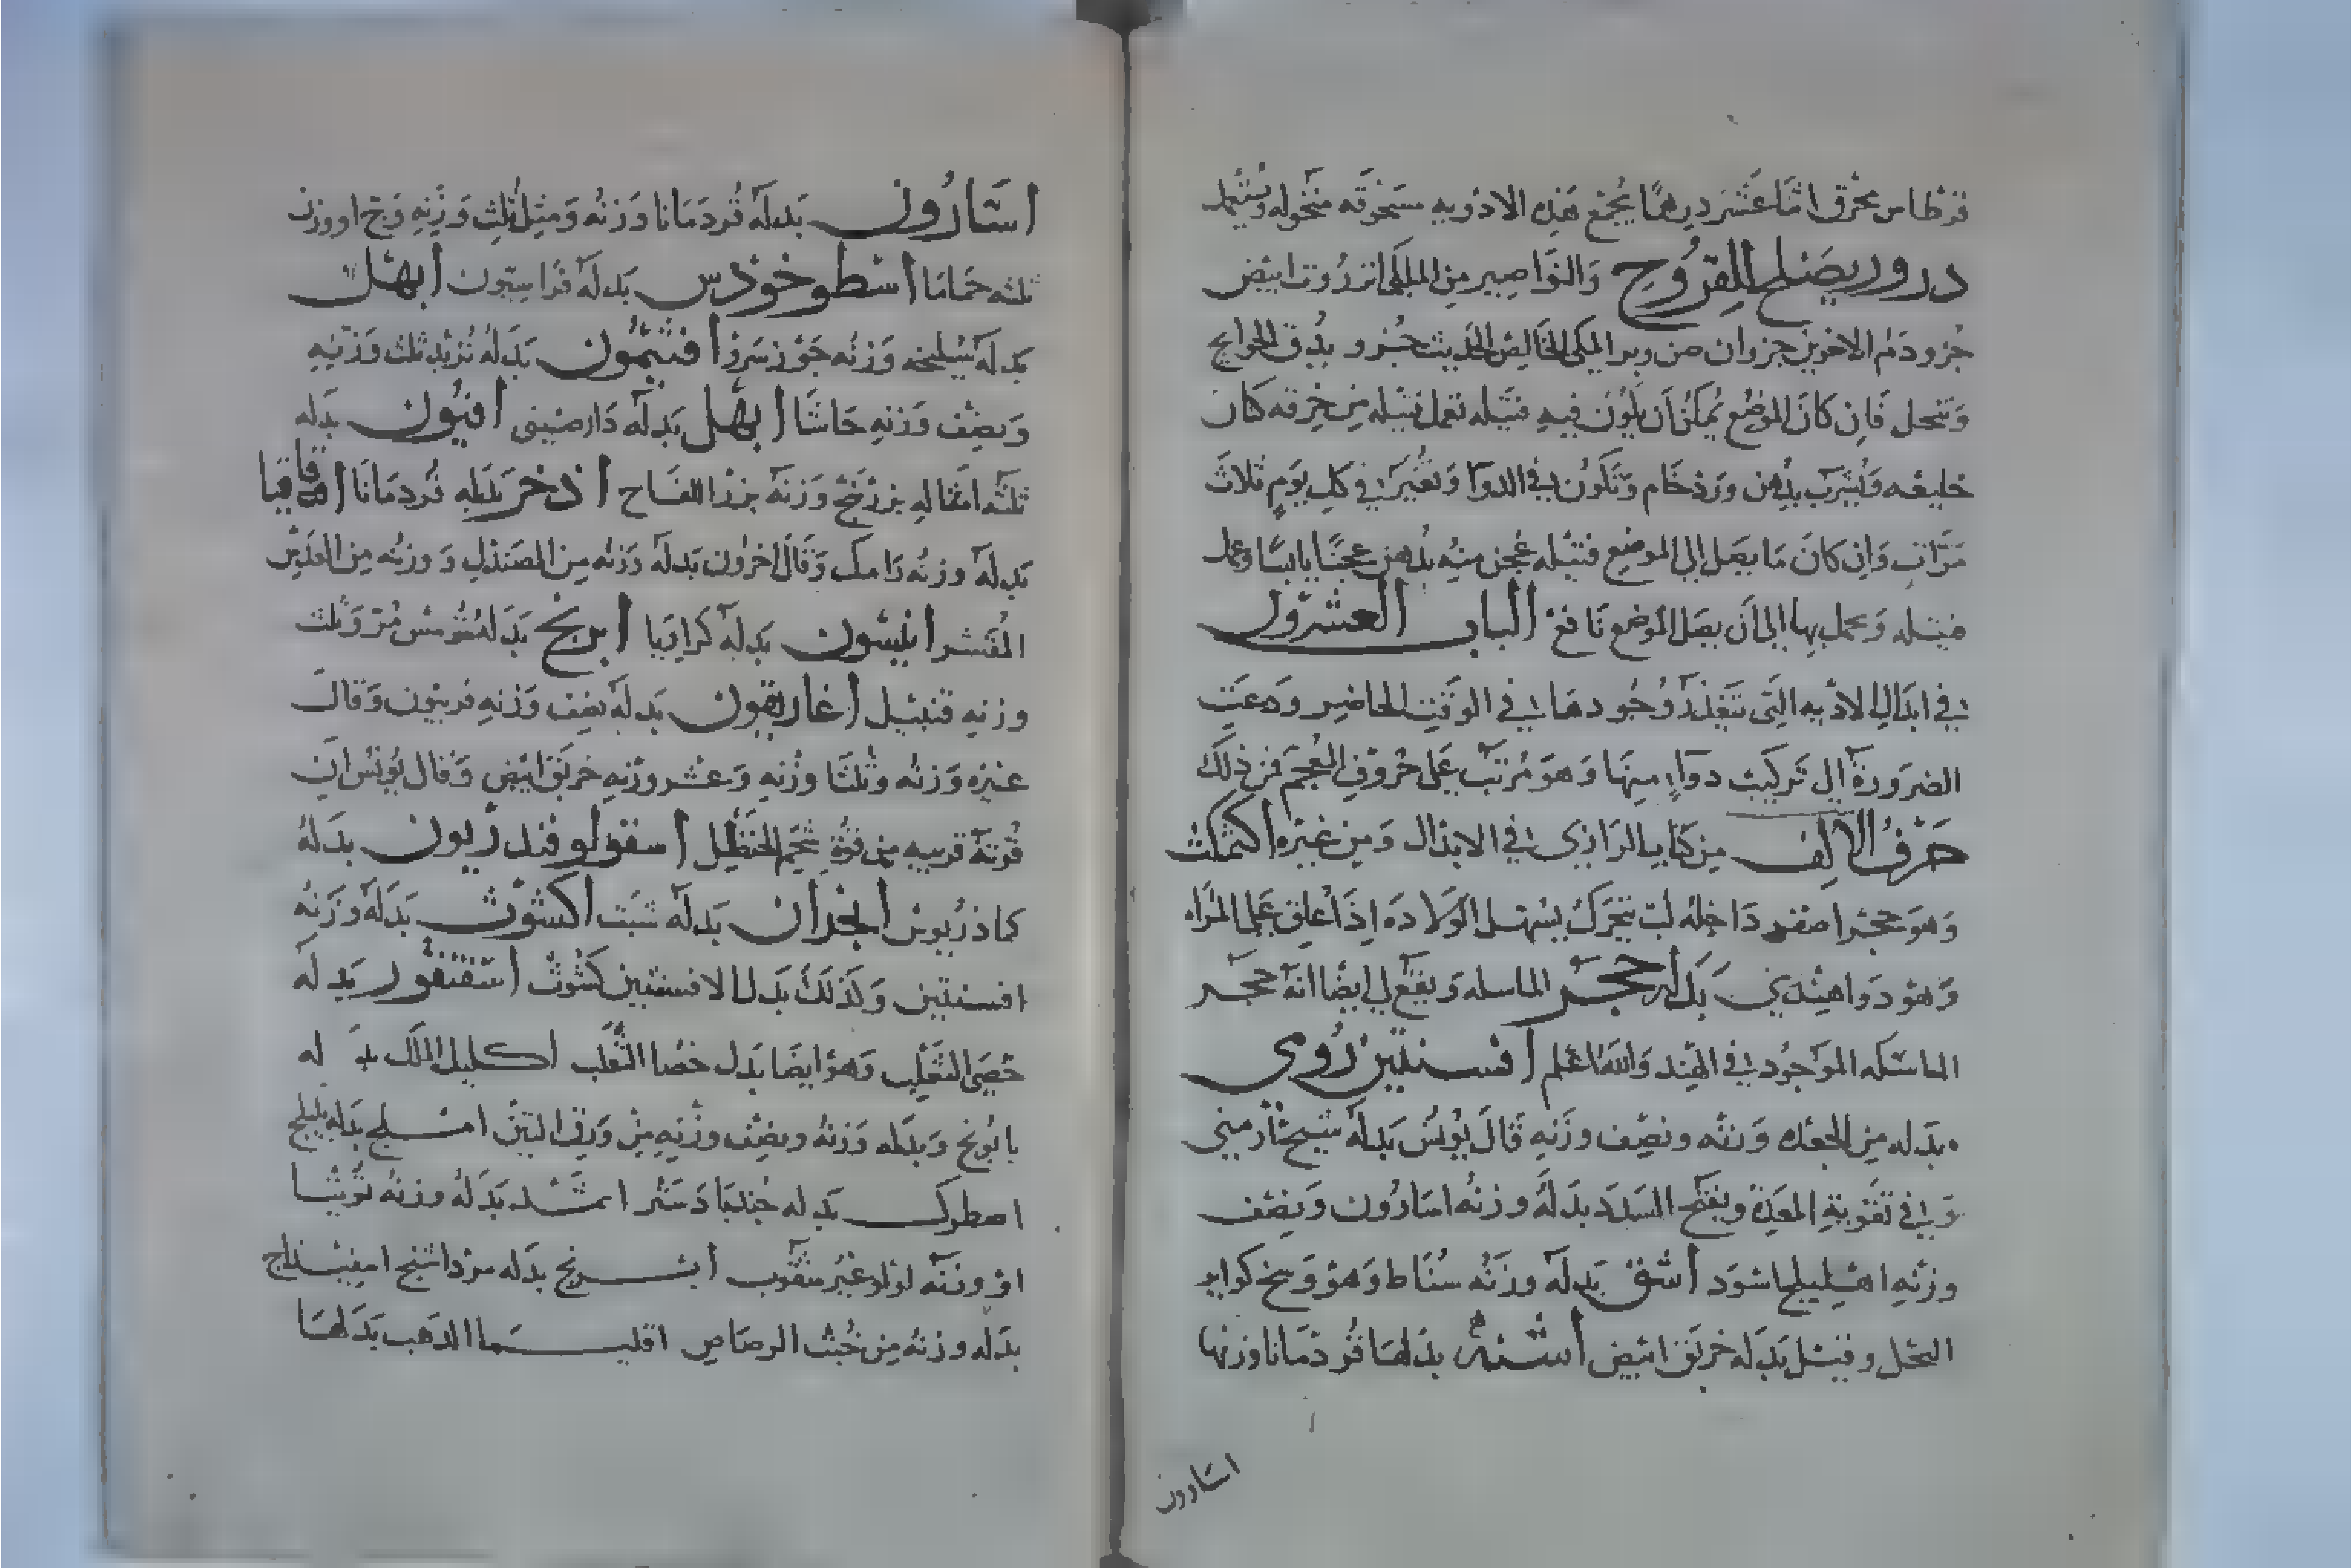 قرطاس محرق اثنا عشر درهمًا يُجمع هذه الادويه مسحوقه منخوله ويستعمل
درور يصلح للقروح والنواصير من الملكي انزروت ابيض
جزو ودم الاخوين جزوان صبر المكي الخالص الحديث جزو يدق الجوايج
وتنحل فان كان الموضع يمكن ان يكون فيه فتيله تعمل فتيله من خرقه كتان
خليعه وتشرب بدهن ورد خام وتكون في الدوا وتغير في كل يوم ثلاث
مرات وان كان ما يصل الى الموضع فتيله عجن منه بدهن عجنًا يابسًا وعمل
فتيله وتحمل بها الى ان يصل الموضع نافع الباب العشرون
في ابدال الادويه التي تتعذر وجودها في الوقت الحاضر ودعت
الضرورة الى تركيب دواء منها وهو مرتب على حروف المعجم فمن ذلك
حرف الالف من كتاب الرازي في الابدال ومن غيره اكتمكت
وهو حجر اصفر داخله لب يتحرك يسهل الولاده اذا علق على المراه
وهو دوا هندي بدله حجر الماسكه ويقع لي ايضًا انه حجر
الماسكه الموجود في الهند والله اعلم افسنتين رومي
بدله من الجعده وزنه ونصف وزنه قال يونس بدله شيح ارميني
وفي تقوية المعدة وبفتح السدد بدله وزنه اسارون ونصف
وزنه اهليلج اسود اشق بدله وزنه سناط وهو وسخ كواير
النحل وقيل بدله خربق ابيض أشنة بدلها قردمانا وزنها
اسارون
اسارون بدله قردمانا وزنه ومثل ثلث وزنه وج او وزن
ثلثه حماما اسطوخودس بدله فراسيون أبهل
بدله سليخه وزنه جوز سرو أفتيمون بدله تربد ثلث وزنه
ونصف وزنه حاشا أبهل بدله دارصيني أفيون بدله
ثلثه امثاله بزر بنج وزنه بزر اللفاح أذخر بدله قردمانا أقاقيا
بدله وزنه رامك وقال اخرون بدله وزنه من الصندل ووزنه من العدس
المقشر انيسون بدله كراويا أبرنج بدله ترمس مر وثلث
وزنه قنبيل أغاريقون بدله نصف وزنه فربيون وقال
غيره وزنه وثلثا وزنه وعشر وزنه خربق ابيض وقال يونس ان
قوته قريبه من قوة شحم الحنظل أسقولوقندريون بدله
كمادريوس انجدان بدله شبت اكشوث بدله وزنه
افسنتين وكذلك بدل الافسنتين كشوث أسقنقور بدله
خصى الثعلب وهو ايضًا بدل خصا الثعلب اكليل الملك بد له
بابونج وبدله وزنه ونصف وزنه من ورق التين املج بدله بليلج
اصطرك بدله جندبادستر اثمد بدله وزنه توتيا
او وزنه لولو غير مثقوب أسرنج بدله مرداسنج اسفيذاج
بدله وزنه من خبث الرصاص اقليميا الذهب بدلها